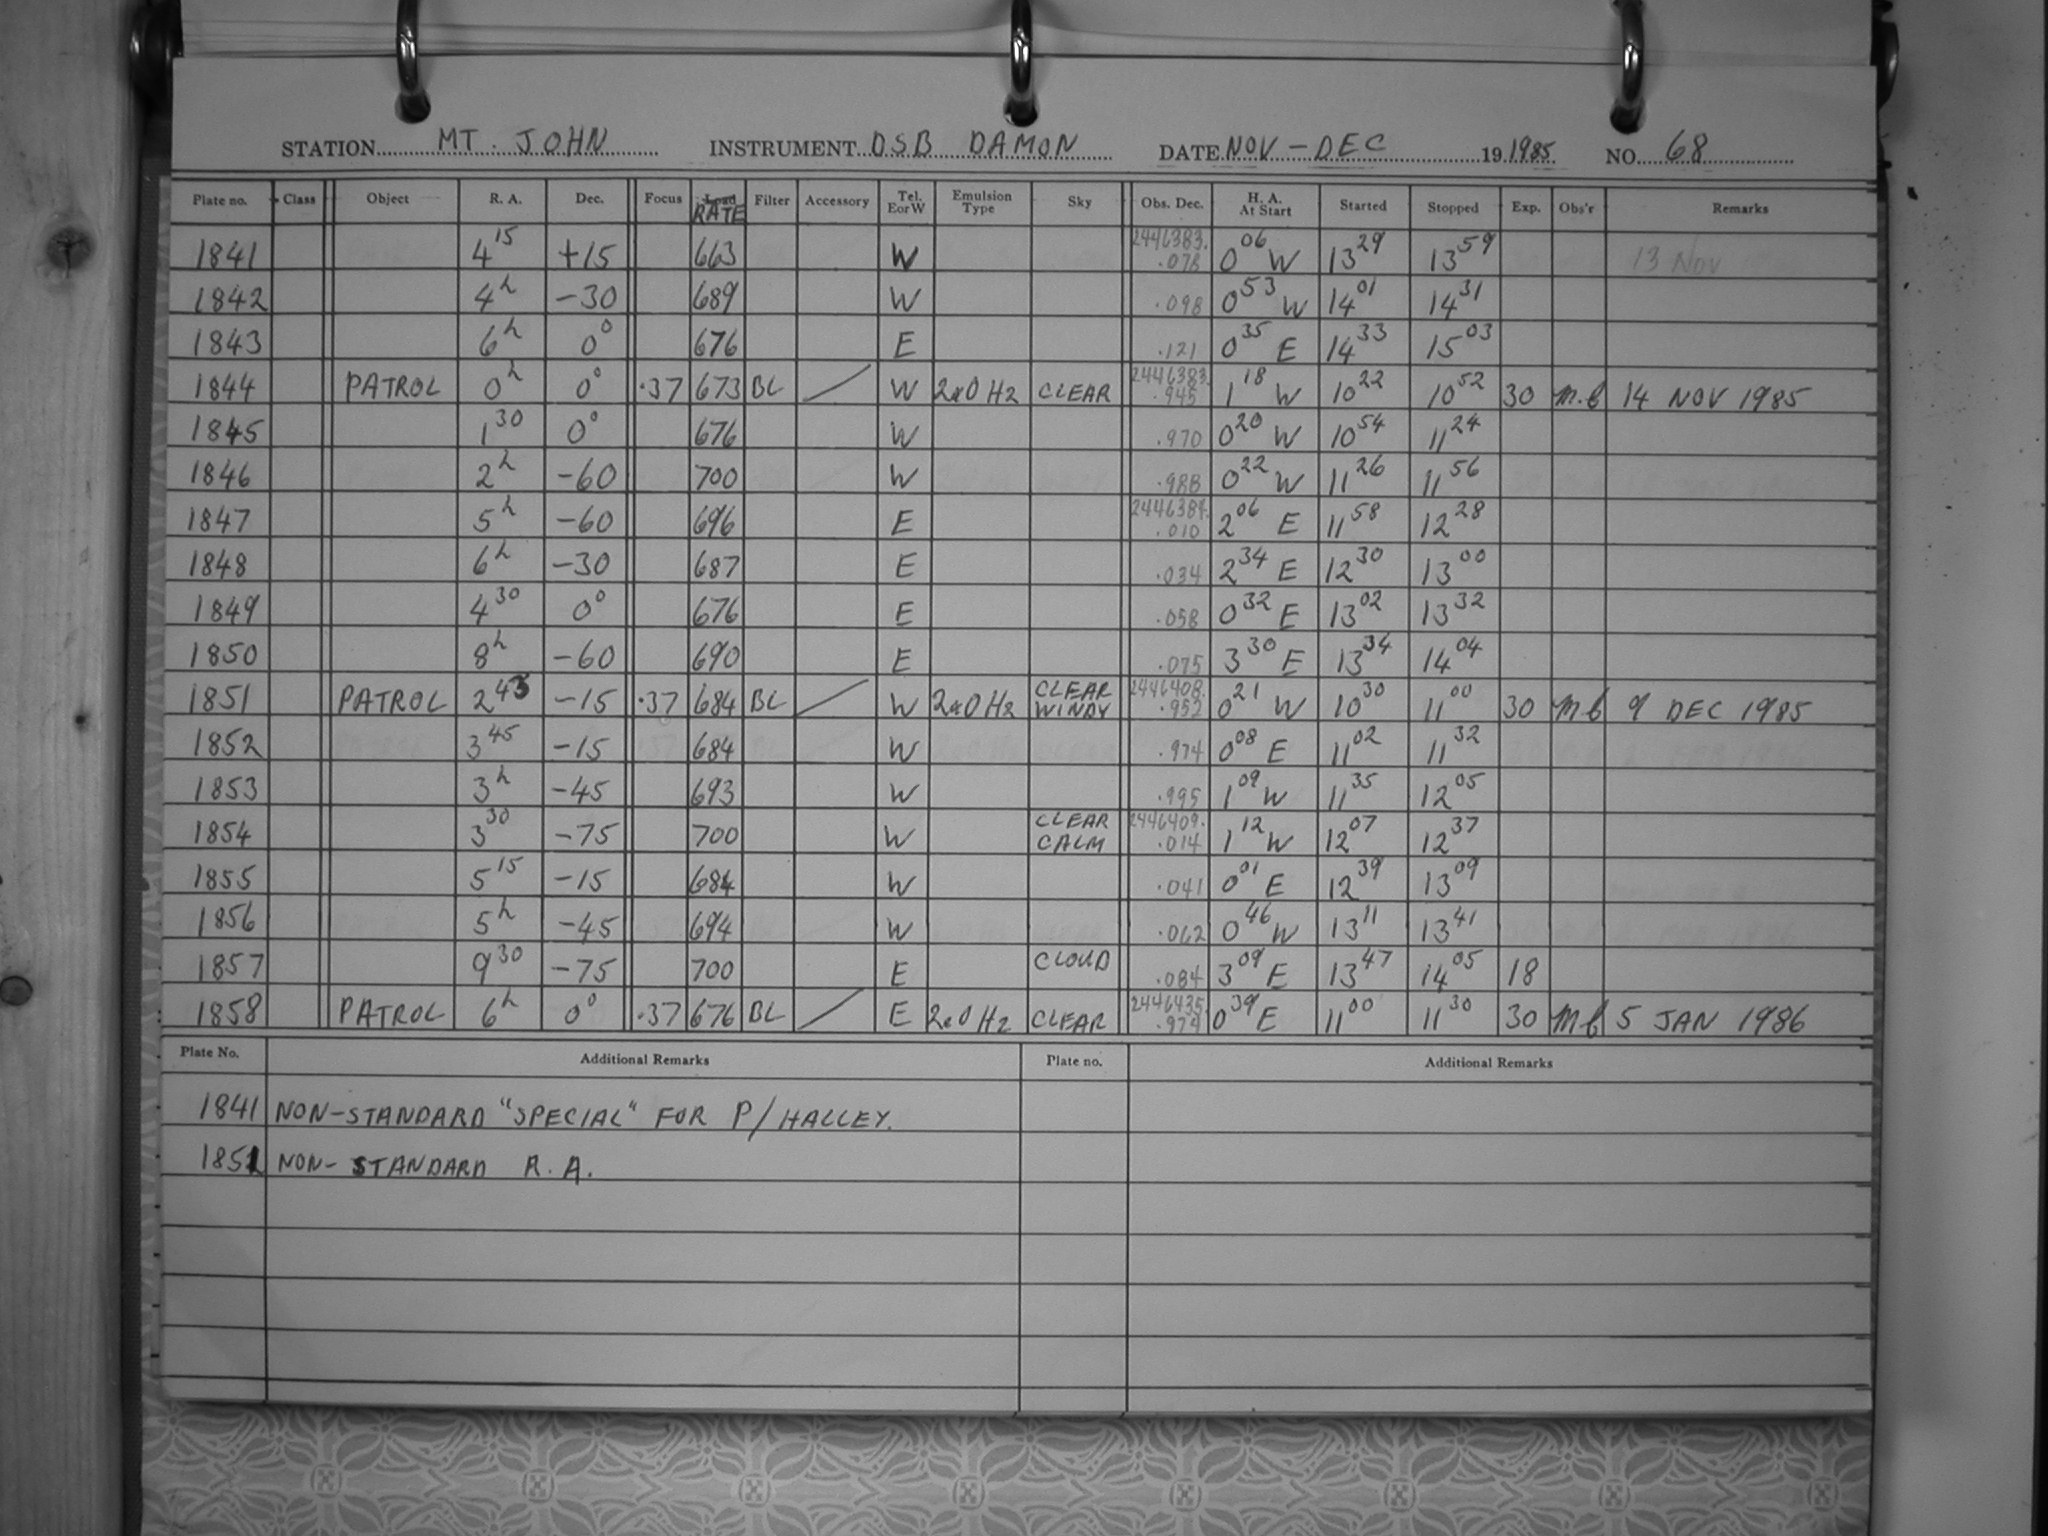 STATION MT. JOHN INSTRUMENT DSB DAMON DATE NOV – DEC 19 1985 NO. 68
Plate no. Class Object R. A. Dec. Focus Load RATE Filter Accessory Tel. E or W Emulsion Type Sky Obs. Dec. H. A. At Start Started Stopped Exp. Obs'r Remarks
1841 4 15 +15 663 W 2446383. .078 0 06 W 13 29 13 59 13 Nov
1842 4h -30 689 W .098 0 53 W 14 01 14 31
1843 6h 0° 676 E .121 0 35 E 14 33 15 03
1844 PATROL 0h 0° .37 673 BL W 2a0 H2 CLEAR 2446383. .945 1 18 W 10 22 10 52 30 M.B 14 NOV 1985
1845 1 30 0° 676 W .970 0 20 W 10 54 11 24
1846 2h -60 700 W .988 0 22 W 11 26 11 56
1847 5h -60 696 E 2446384. .010 2 06 E 11 58 12 28
1848 6h -30 687 E .034 2 34 E 12 30 13 00
1849 4 30 0° 676 E .058 0 32 E 13 02 13 32
1850 8h -60 690 E .075 3 30 E 13 34 14 04
1851 PATROL 2 45 -15 .37 684 BL W 2a0 H2 CLEAR WINDY 2446408. .952 0 21 W 10 30 11 00 30 MB 9 DEC 1985
1852 3 45 -15 684 W .974 0 08 E 11 02 11 32
1853 3h -45 693 W .995 1 09 W 11 35 12 05
1854 3 30 -75 700 W CLEAR CALM 2446409. .014 1 12 W 12 07 12 37
1855 5 15 -15 684 W .041 0 01 E 12 39 13 09
1856 5h -45 694 W .062 0 46 W 13 11 13 41
1857 9 30 -75 700 E CLOUD .084 3 09 E 13 47 14 05 18
1858 PATROL 6h 0° .37 676 BL E 2a0 H2 CLEAR 2446435. .974 0 39 E 11 00 11 30 30 MB 5 JAN 1986
Plate No. Additional Remarks Plate no. Additional Remarks
1841 NON-STANDARD "SPECIAL" FOR P/HALLEY.
1851 NON-STANDARD R.A.